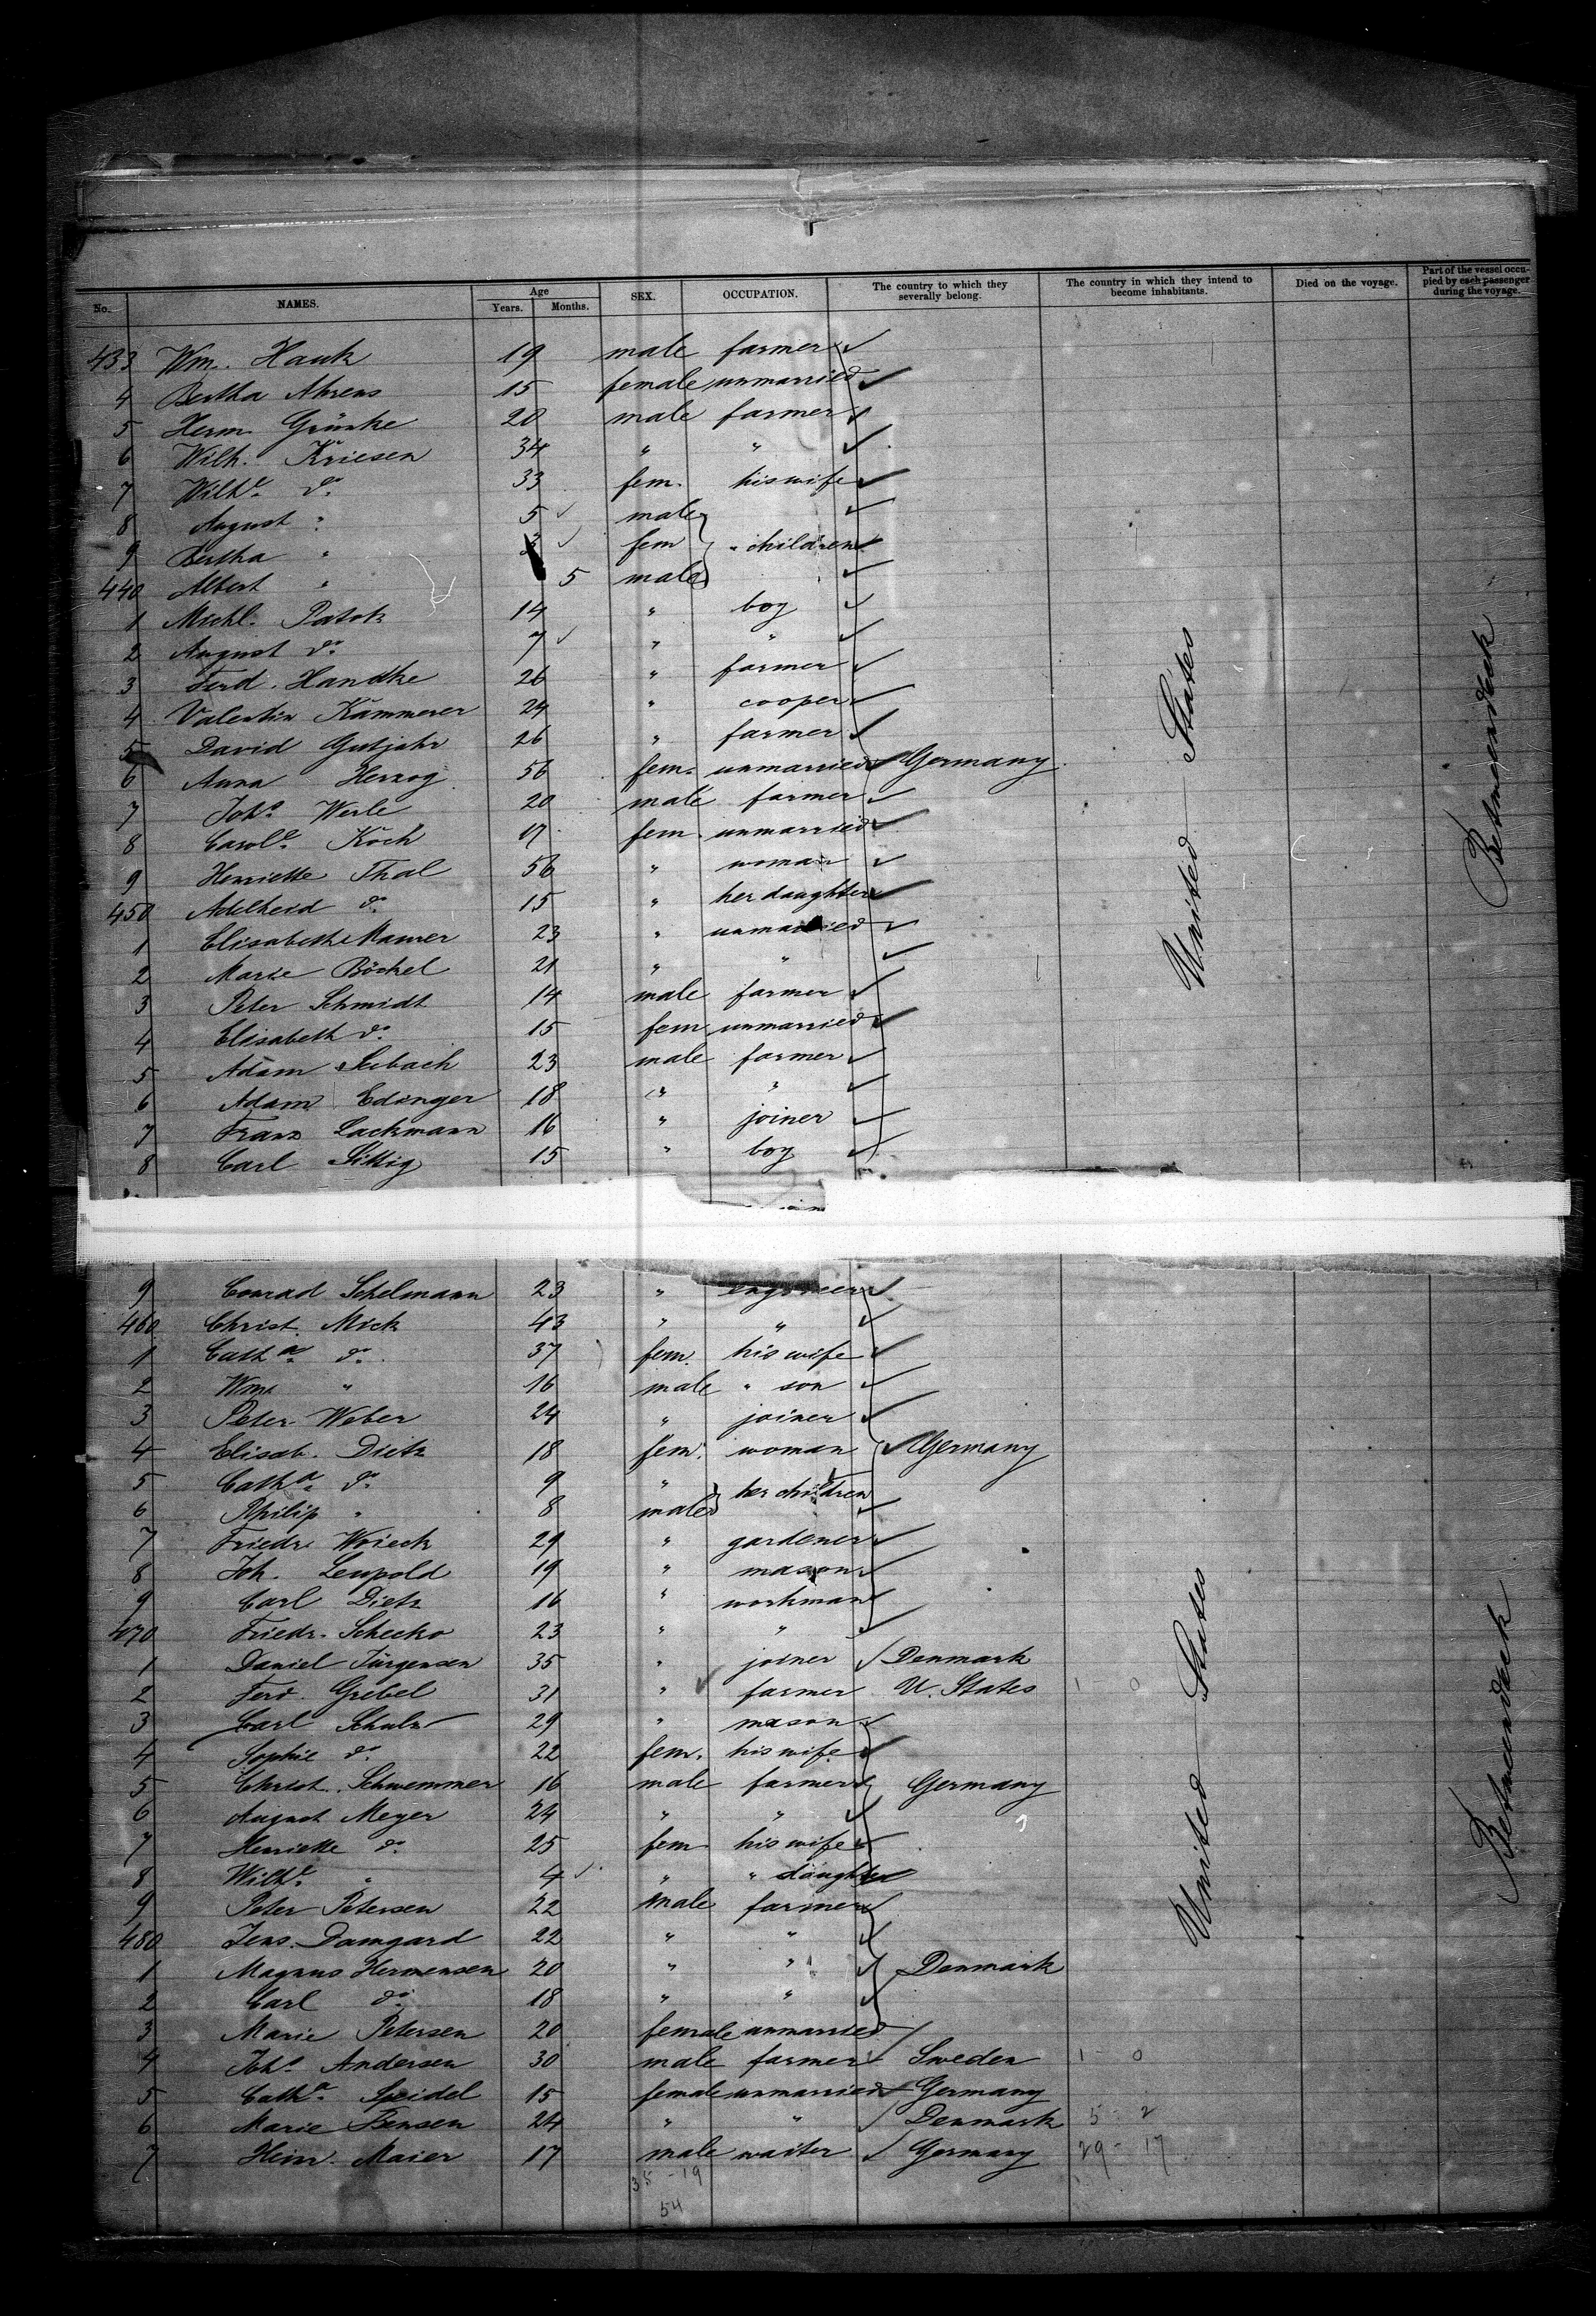 No. NAMES. Age Years. Months. SEX. OCCUPATION. The country to which they severally belong. The country in which they intend to become inhabitants. Died on the voyage. Part of the vessel occupied by each passenger during the voyage.
433 Wm. Hauk 19 male farmer
4 Bertha Ahrens 15 female unmarried
5 Herm. Grünke 20 male farmer
6 Wilh. Kriesen 34 " "
7 Wilhe. do. 33 fem. his wife
8 August " 5 male
9 Bertha " fem " children
440 Albert " 5 male
1 Michl. Patok 14 " boy
2 August do. 7 " "
3 Ferd. Handke 26 " farmer
4 Valentin Kämmerer 24 " cooper
5 David Gutjahr 26 " farmer
6 Anna Herzog 56 fem. unmarried Germany
7 Johs. Werle 20 male farmer
8 Carole. Koch 17 fem. unmarried
9 Henriette Thal 56 " woman
450 Adelheid do. 15 " her daughter
1 Elisabeth Maurer 23 " unmarried
2 Marie Böckel 21 " "
3 Peter Schmidt 14 male farmer
4 Elisabeth do. 15 fem unmarried
5 Adam Seibach 23 male farmer
6 Adam Edinger 18 " "
7 Franz Lackmann 16 " joiner
8 Carl Sittig 15 " boy
United States
9 Conrad Schelmann 23 " engineer
460 Christ. Mick 43 " "
1 Catha. do. 37 fem. his wife
2 Wm. " 16 male " son
3 Peter Weber 24 " joiner
4 Elisab. Dietz 18 fem. woman Germany
5 Catha. do. 9 " her children
6 Philip " 8 male
7 Friedr. Woieck 29 " gardener
8 Joh. Leupold 19 " mason
9 Carl Dietz 16 " workman
470 Friedr. Schecko 23 " "
1 Daniel Jürgensen 35 " joiner Denmark
2 Ferd. Grebel 31 " farmer U. States 1 0
3 Carl Schulz 29 " mason
4 Sophie do. 22 fem. his wife
5 Christ. Schwemmer 16 male farmer Germany
6 August Meyer 24 " "
7 Henriette do. 25 fem. his wife
8 Wilhe. " 4 " " daughter
9 Peter Petersen 22 male farmer
480 Jens. Damgard 22 " "
1 Magnus Hermensen 20 " " Denmark
2 Carl do. 18 " "
3 Marie Petersen 20 female unmarried
4 Johs. Andersen 30 male farmer Sweden 1 - 0
5 Catha. Speidel 15 female unmarried Germany
6 Marie Bensen 24 " " Denmark 5 - 2
7 Heinr. Maier 17 male waiter Germany 29 - 17
35 - 19
54
United States